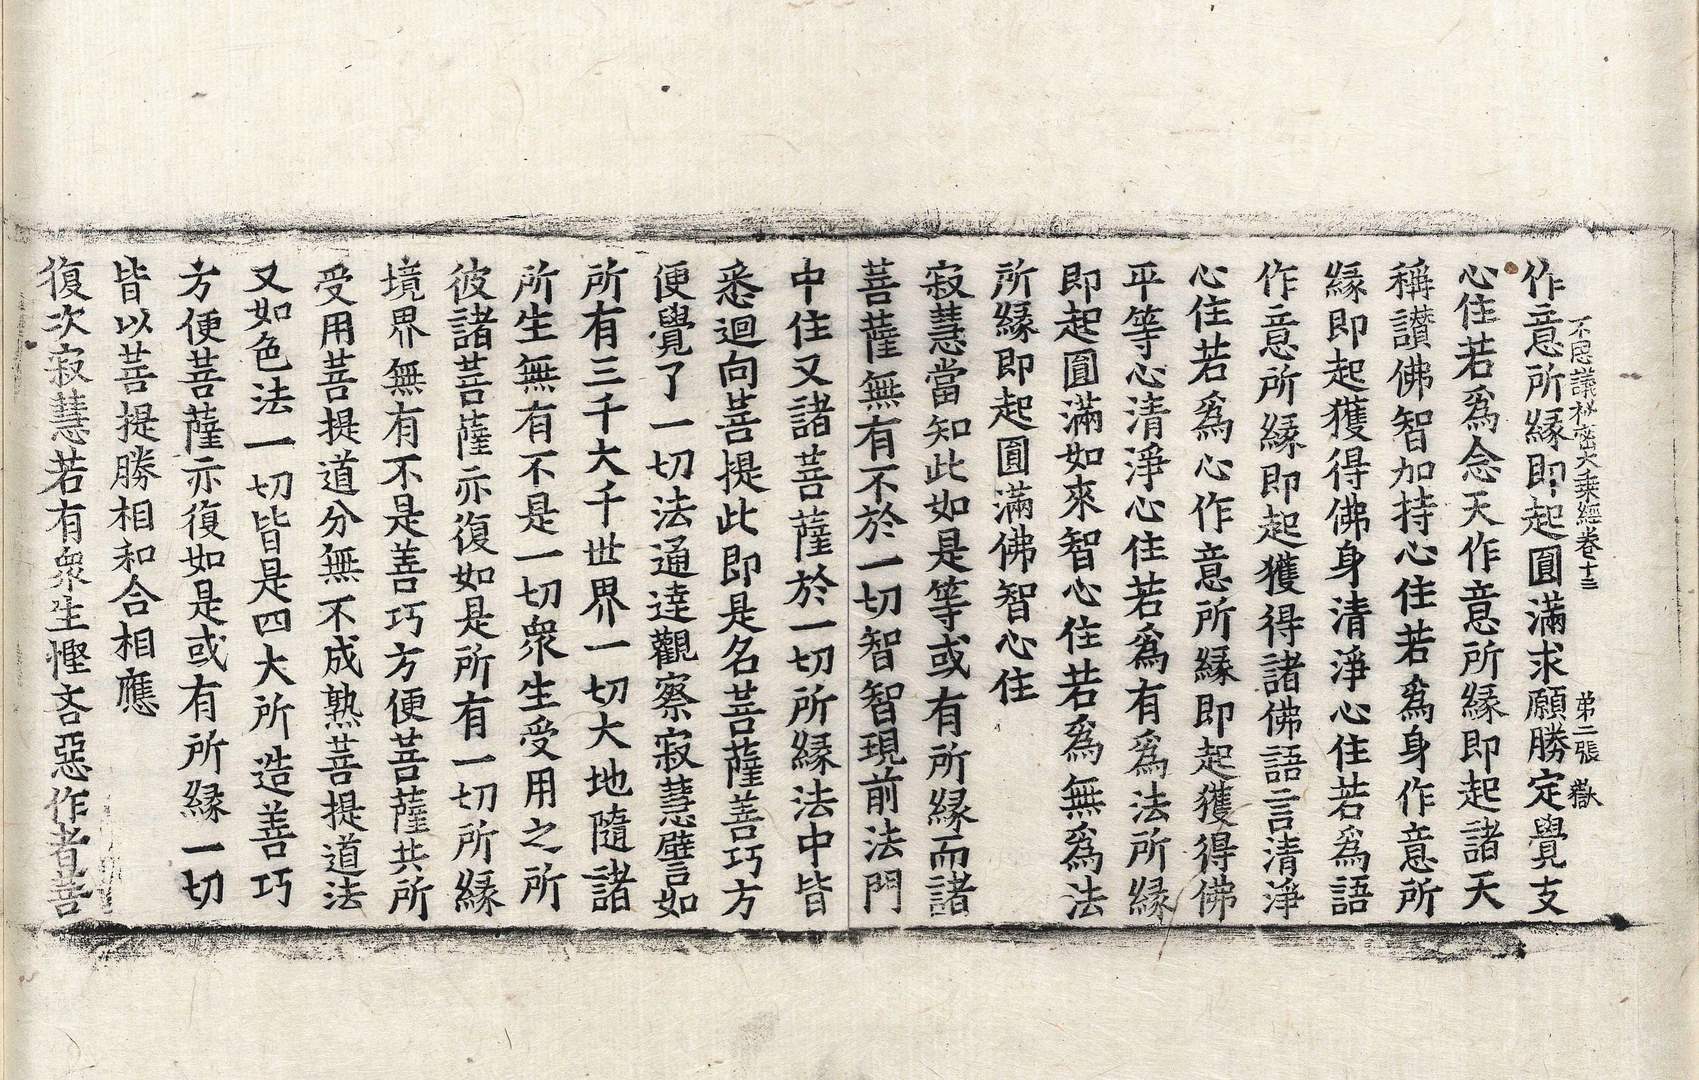 不思議祕密大乘經卷十三 第二張 嶽
作意所緣即起圓滿求願勝定覺支
心住若爲念天作意所緣即起諸天
稱讃佛智加持心住若爲身作意所
緣即起獲得佛身清淨心住若爲語
作意所緣即起獲得諸佛語言清淨
心住若爲心作意所緣即起獲得佛
平等心清淨心住若爲有爲法所緣
即起圓滿如來智心住若爲無爲法
所緣即起圓滿佛智心住
寂慧當知此如是等或有所緣而諸
菩薩無有不於一切智智現前法門
中住又諸菩薩於一切所緣法中皆
悉迴向菩提此即是名菩薩善巧方
便覺了一切法通達觀察寂慧譬如
所有三千大千世界一切大地隨諸
所生無有不是一切衆生受用之所
彼諸菩薩亦復如是所有一切所緣
境界無有不是善巧方便菩薩共所
受用菩提道分無不成熟菩提道法
又如色法一切皆是四大所造善巧
方便菩薩亦復如是或有所緣一切
皆以菩提勝相和合相應
復次寂慧若有衆生慳吝惡作者菩